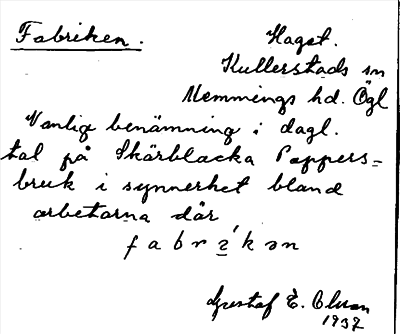 Fabriken.
Hagst.
Kullerstads sn
Memmings hd. Ögl
Vanlig benämning i dagl.
tal på Skärblacka Pappers=
bruk i synnerhet bland
arbetarna där
fabri̱´kən
Gustaf E. Olsson
1937